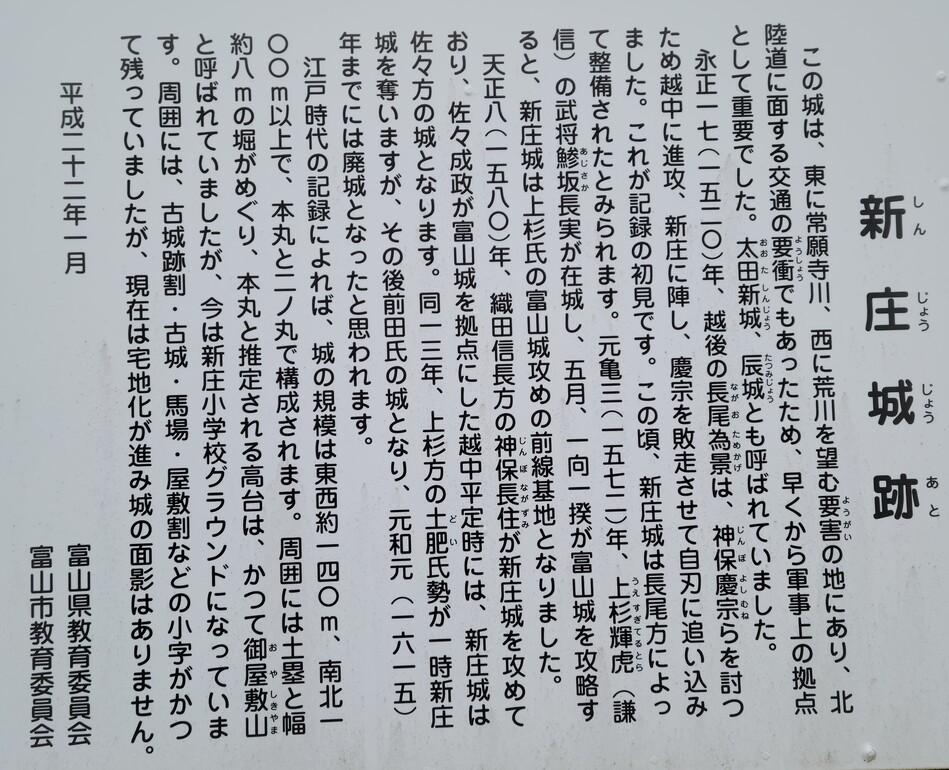 新庄城跡
この城は、東に常願寺川、西に荒川を望む要害の地にあり、北
陸道に面する交通の要衝でもあったため、早くから軍事上の拠点
として重要でした。太田新城、辰城とも呼ばれていました。
永正一七(一五二〇)年、越後の長尾為景は、神保慶宗らを討つ
ため越中に進攻、新庄に陣し、慶宗を敗走させて自刃に追い込み
ました。これが記録の初見です。この頃、新庄城は長尾方によっ
て整備されたとみられます。元亀三(一五七二)年、上杉輝虎(謙
信)の武将鰺坂長実が在城し、五月、一向一揆が富山城を攻略す
ると、新庄城は上杉氏の富山城攻めの前線基地となりました。
天正八(一五八〇)年、織田信長方の神保長住が新庄城を攻めて
おり、佐々成政が富山城を拠点にした越中平定時には、新庄城は
佐々方の城となります。同一三年、上杉方の土肥氏勢が一時新庄
城を奪いますが、その後前田氏の城となり、元和元(一六一五)
年までには廃城となったと思われます。
江戸時代の記録によれば、城の規模は東西約一四〇m、南北一
〇〇m以上で、本丸と二ノ丸で構成されます。周囲には土塁と幅
約八mの堀がめぐり、本丸と推定される高台は、かつて御屋敷山
と呼ばれていましたが、今は新庄小学校グラウンドになっていま
す。周囲には、古城跡割・古城・馬場・屋敷割などの小字がかつ
て残っていましたが、現在は宅地化が進み城の面影はありません。
平成二十二年一月
富山県教育委員会
富山市教育委員会